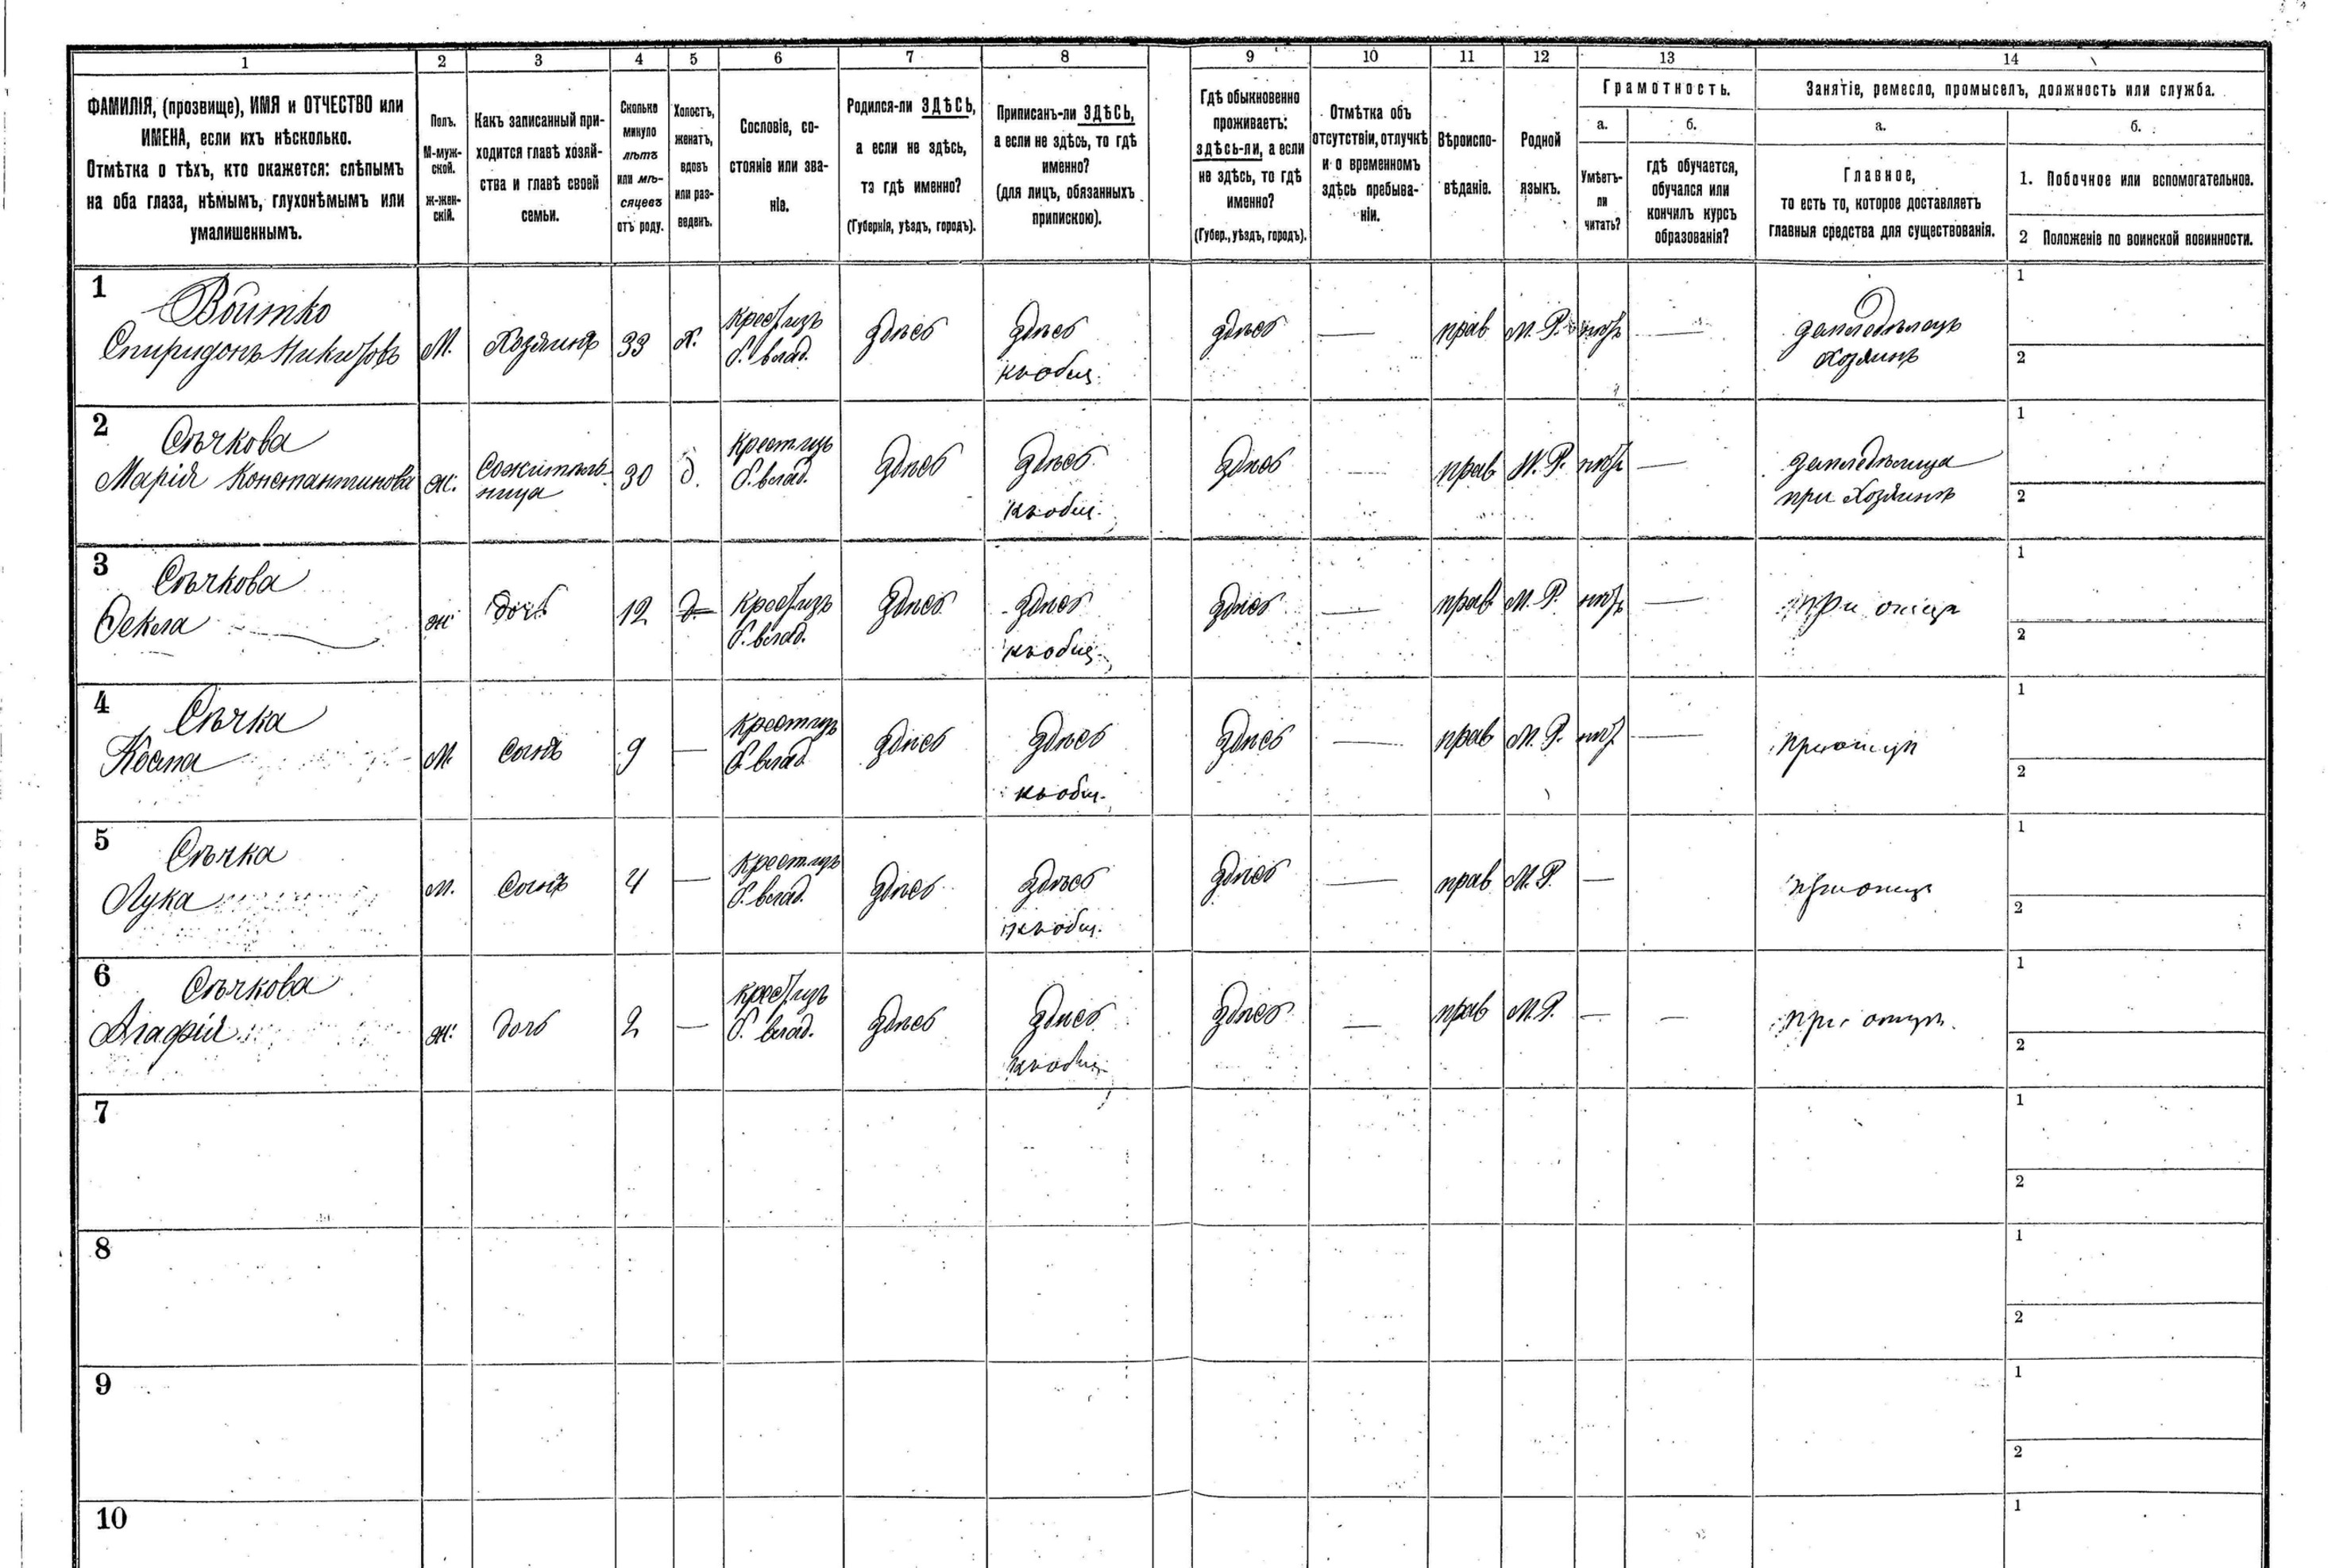 1 2 3 4 5 6 7 8 9 10 11 12 13 14
ФАМИЛІЯ, (прозвище), ИМЯ и ОТЧЕСТВО или
ИМЕНА, если ихъ нѣсколько.
Отмѣтка о тѣхъ, кто окажется: слѣпымъ
на оба глаза, нѣмымъ, глухонѣмымъ или
умалишеннымъ.
Полъ.
М-муж-
ской.
ж-жен-
скій.
Какъ записанный при-
ходится главѣ хозяй-
ства и главѣ своей
семьи.
Сколько
минуло
лѣтъ
или мѣ-
сяцевъ
отъ роду.
Холостъ,
женатъ,
вдовъ
или раз-
веденъ.
Сословіе, со-
стояніе или зва-
ніе.
Родился-ли ЗДѢСЬ,
а если не здѣсь,
то гдѣ именно?
(Губернія, уѣздъ, городъ).
Приписанъ-ли ЗДѢСЬ,
а если не здѣсь, то гдѣ
именно?
(для лицъ, обязанныхъ
припискою).
Гдѣ обыкновенно
проживаетъ:
здѣсь-ли, а если
не здѣсь, то гдѣ
именно?
(Губер., уѣздъ, городъ).
Отмѣтка объ
отсутствіи, отлучкѣ
и о временномъ
здѣсь пребыва-
ніи.
Вѣроиспо-
вѣданіе.
Родной
языкъ.
Грамотность.
а.
Умѣетъ-
ли
читать?
б.
гдѣ обучается,
обучался или
кончилъ курсъ
образованія?
Занятіе, ремесло, промыселъ, должность или служба.
а.
Главное,
то есть то, которое доставляетъ
главныя средства для существованія.
б.
1. Побочное или вспомогательное.
2 Положеніе по воинской повинности.
1
Войтко
Спиридонъ
М.
Хозяинъ
33
х.
Крест. изъ
б. влад.
здѣсь
здѣсь
къ общ.
здѣсь
—
прав
М. Р.
нѣтъ
—
земледѣлецъ
Хозяинъ
1
2
2
Сѣчкова
Марія Константинова
ж.
Сожитель-
ница
30
д.
Крест. изъ
б. влад.
здѣсь
здѣсь
къ общ.
здѣсь
—
прав
М. Р.
нѣтъ
—
земледѣлица
при Хозяинѣ
1
2
3
Сѣчкова
Ѳекла
ж
дочь
12
д.
Крест. изъ
б. влад.
здѣсь
здѣсь
къ общ.
здѣсь
—
прав
М. Р.
нѣтъ
—
при отцѣ
1
2
4
Сѣчка
Косма
М
сынъ
9
—
Крест. изъ
б. влад
здѣсь
здѣсь
къ общ.
здѣсь
—
прав
М. Р.
нѣт
—
при отцѣ
1
2
5
Сѣчка
Лука
м.
сынъ
4
—
Крест. изъ
б. влад.
здѣсь
здѣсь
къ общ.
здѣсь
—
прав
М. Р.
—
при отцѣ
1
2
6
Сѣчкова
Агафія
ж.
дочь
2
—
крест. изъ
б. влад.
здѣсь
здѣсь
къ общ.
здѣсь
—
прав
М. Р.
—
—
при отцѣ.
1
2
7
1
2
8
1
2
9
1
2
10
1